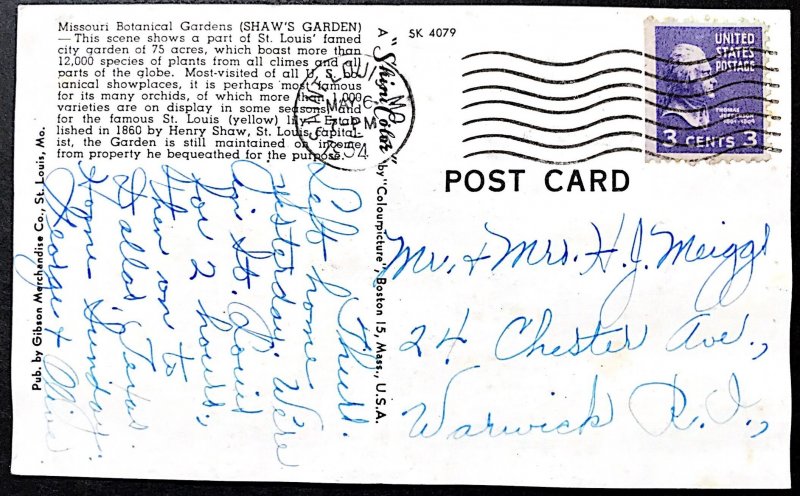 Missouri Botanical Gardens (SHAW'S GARDEN)
— This scene shows a part of St. Louis' famed
city garden of 75 acres, which boast more than
12,000 species of plants from all climes and all
parts of the globe. Most-visited of all U. S. bo-
tanical showplaces, it is perhaps most famous
for its many orchids, of which more than 1,000
varieties are on display in some seasons, and
for the famous St. Louis (yellow) lily. Estab-
lished in 1860 by Henry Shaw, St. Louis capital-
ist, the Garden is still maintained on income
from property he bequeathed for the purpose.
Pub. by Gibson Merchandise Co., St. Louis, Mo.
A "Shini Color" by "Colourpicture", Boston 15, Mass., U.S.A.
SK 4079
ST. LOUIS, MO.
MAY 6
PM
1954
UNITED
STATES
POSTAGE
THOMAS
JEFFERSON
3 CENTS 3
POST CARD
Thurs.
Left home
yesterday. We're
in St. Louis
for 2 hours,
then on to
Dallas, Texas.
Home Sunday.
George & Olive
Mr. & Mrs. H. J. Meiggs
24 Chester Ave.,
Warwick R. I.,